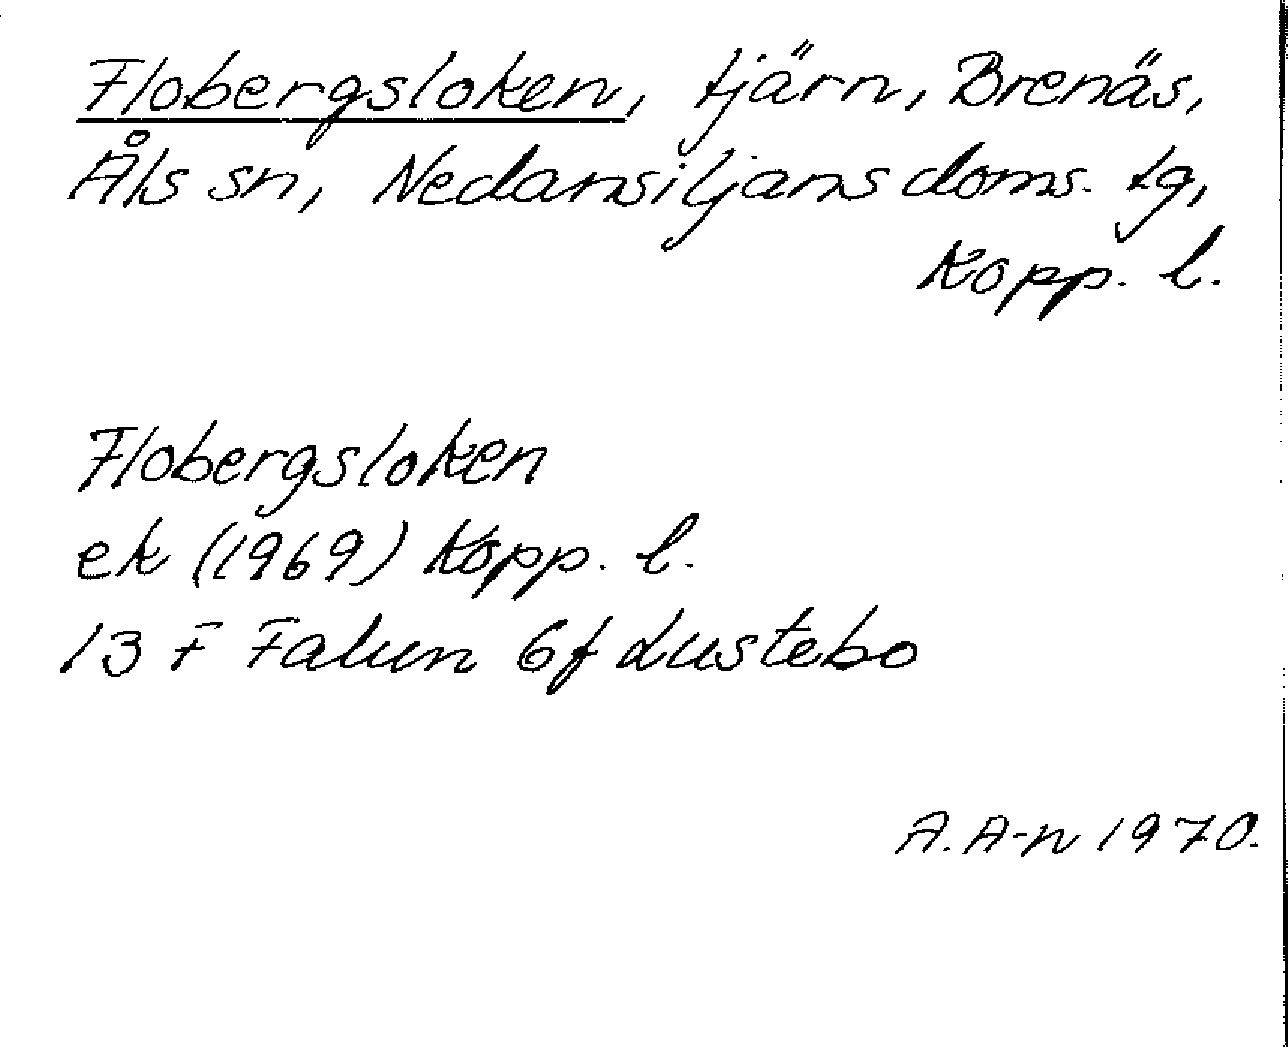 Flobergsloken, tjärn, Brenäs,
Åls sn, Nedansiljans doms. tg,
Kopp. l.
Flobergsloken
ek (1969) Kopp. l.
13 F Falun 6f Lustebo
A. A-n 1970.